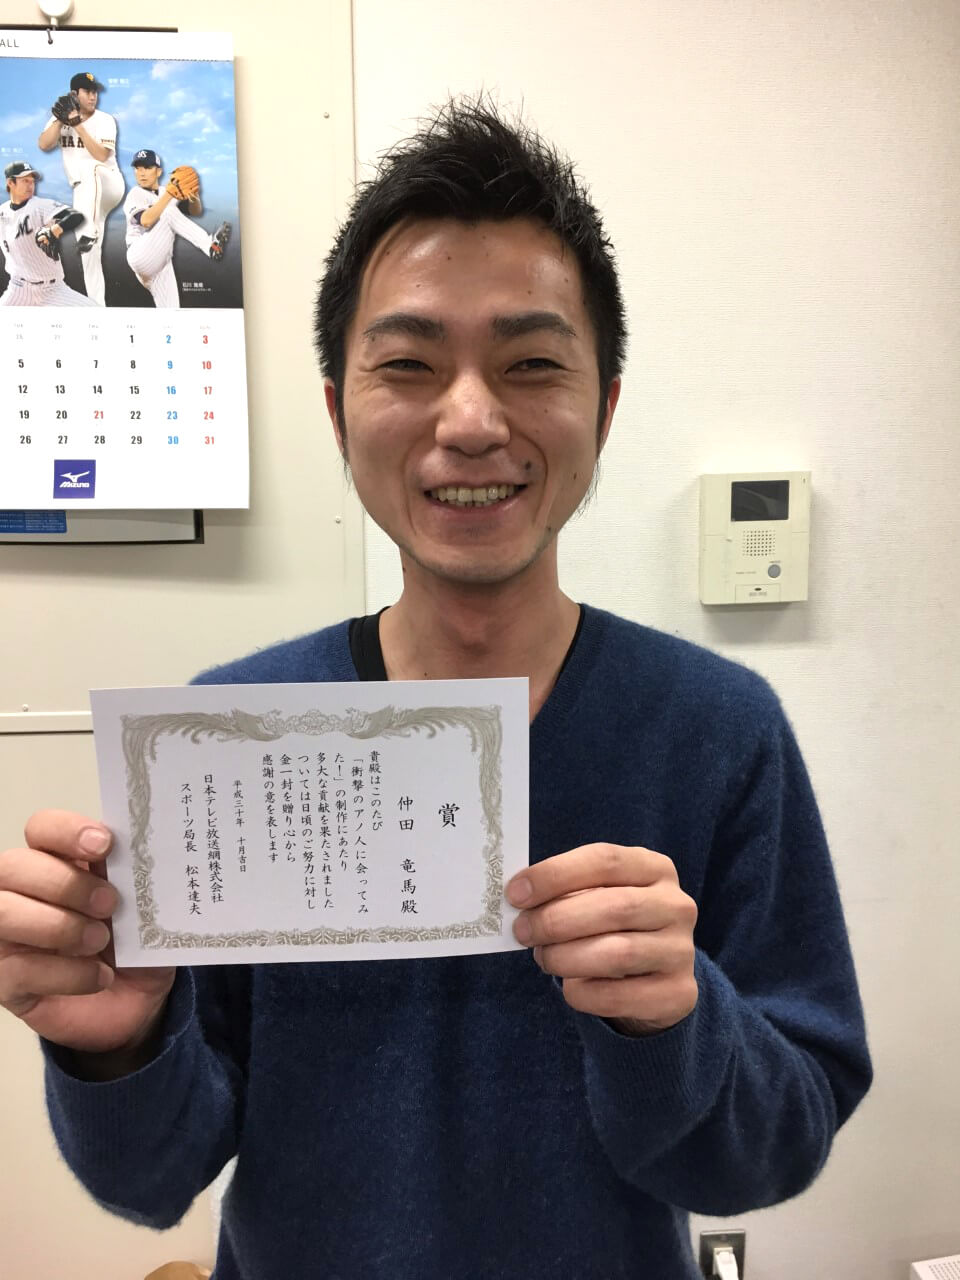 ALL
TUE WED THU FRI SAT SUN
26 27 28 1 2 3
5 6 7 8 9 10
12 13 14 15 16 17
19 20 21 22 23 24
26 27 28 29 30 31
MIZUNO
賞
仲田 竜馬殿
貴殿はこのたび
「衝撃のアノ人に会ってみ
た!」の制作にあたり
多大な貢献を果たされました
ついては日頃のご努力に対し
金一封を贈り心から
感謝の意を表します
平成三十年 十月吉日
日本テレビ放送網株式会社
スポーツ局長 松本達夫